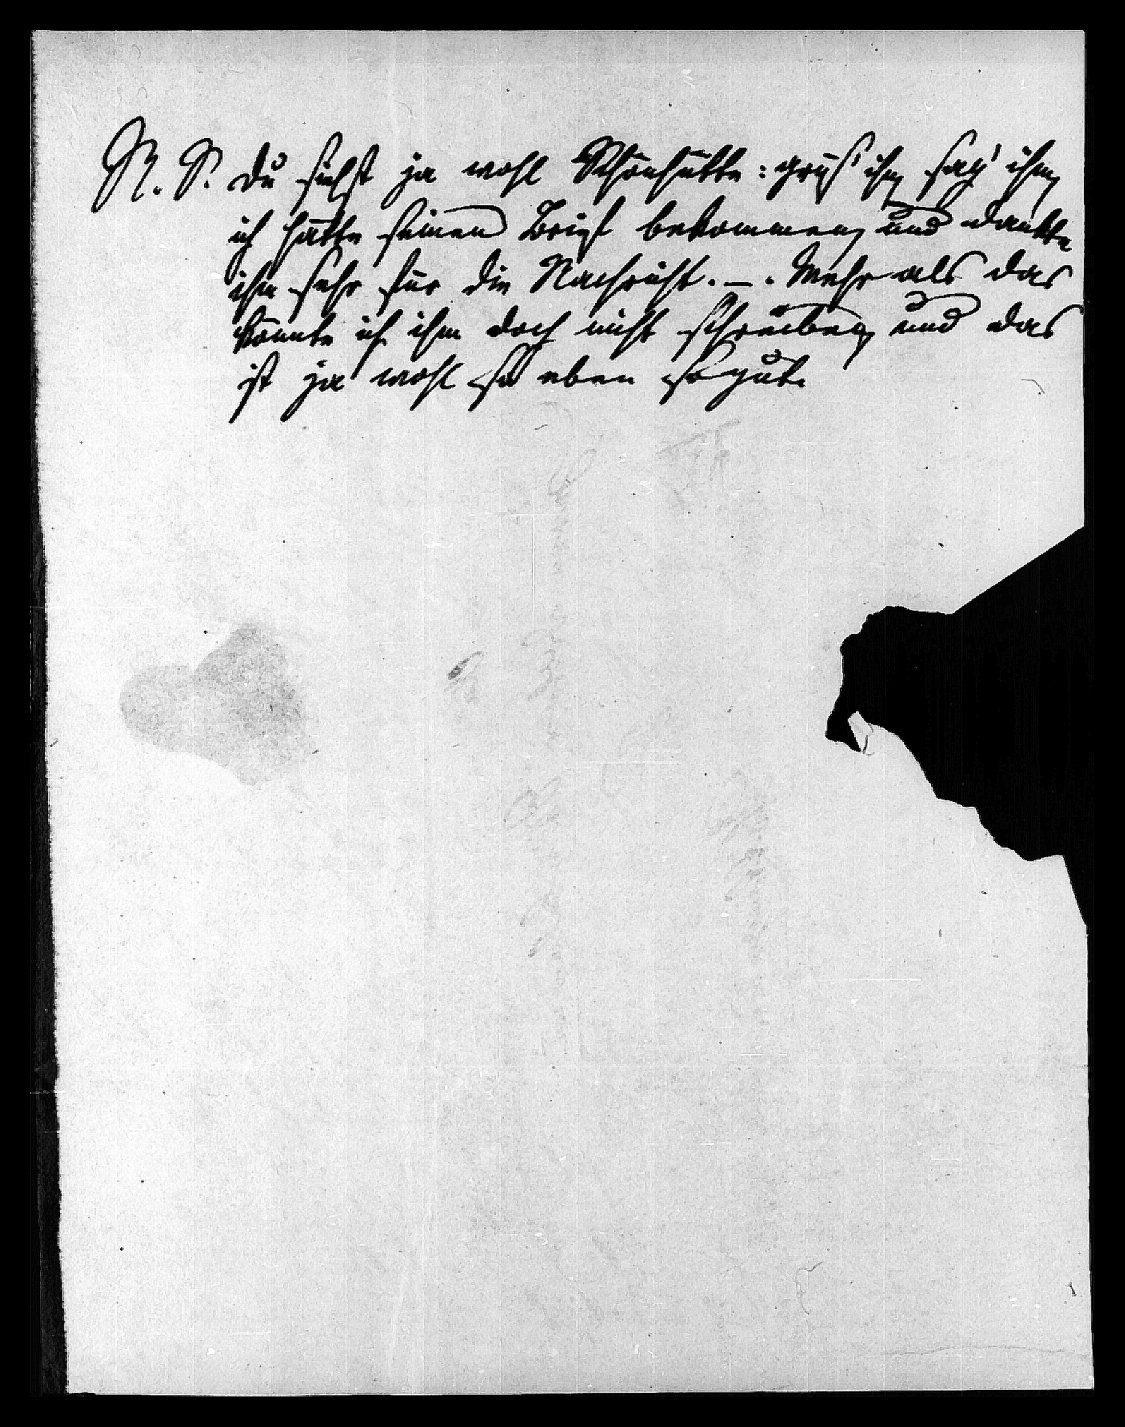 N. S. Du siehst ja wohl Schönhütte: grüß' ihn, sag' ihm,
ich hätte seinen Brief bekommen, und dankte
ihm sehr für die Nachricht. –. Mehr als das
könnte ich ihm doch nicht schreiben, und das
ist ja wohl so eben so gut.